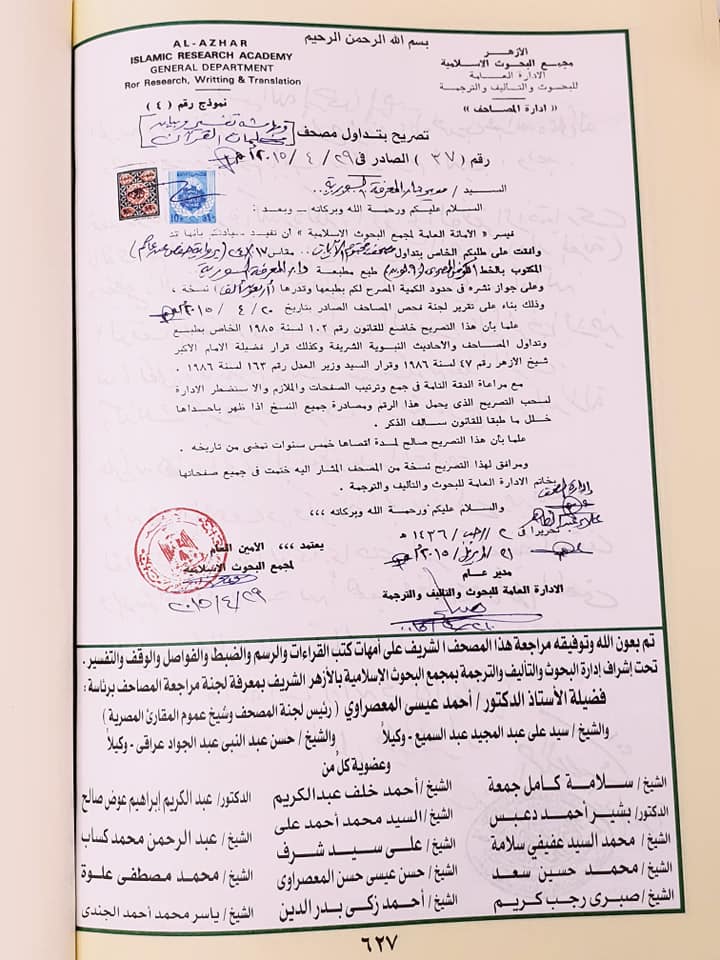 بسم الله الرحمن الرحيم
AL-AZHAR
ISLAMIC RESEARCH ACADEMY
GENERAL DEPARTMENT
Ror Research, Writting & Translation
الأزهر
مجمع البحوث الاسلامية
الادارة العامة
للبحوث والتأليف والترجمة
« ادارة المصاحف »
نموذج رقم (٤)
تصريح بتداول مصحف وبهامشه تفسير وبيان كلمات القرآن
رقم (٣٧) الصادر فى ٢٩ / ٤ / ٢٠١٥م
السيد / مدير دار المعرفة السورية ..
السلام عليكم ورحمة الله وبركاته — وبعد :
فيسر « الأمانة العامة لمجمع البحوث الاسلامية » أن تفيد سيادتكم بأنها
وافقت على طلبكم الخاص بتداول مصحف مقاس ١٧/٢٤ (برواية حفص عن عاصم)
المكتوب بالخط طبع مطبعة دار المعرفة السورية
وعلى جواز نشره فى حدود الكمية المصرح لكم بطبعها وقدرها (أربعون ألف) نسخة .
وذلك بناء على تقرير لجنة فحص المصاحف الصادر بتاريخ ٢٠ / ٤ / ٢٠١٥م
علما بأن هذا التصريح خاضع للقانون رقم ١٠٢ لسنة ١٩٨٥ الخاص بطبع
وتداول المصاحف والأحاديث النبوية الشريفة وكذلك قرار فضيلة الامام الأكبر
شيخ الأزهر رقم ٤٧ لسنة ١٩٨٦ وقرار السيد وزير العدل رقم ١٦٣ لسنة ١٩٨٦ .
مع مراعاة الدقة التامة فى جمع وترتيب الصفحات والملازم والا ستضطر الادارة
لسحب التصريح الذى يحمل هذا الرقم ومصادرة جميع النسخ اذا ظهر باحداها
خلل ما طبقا للقانون سالف الذكر .
علما بأن هذا التصريح صالح لمدة أقصاها خمس سنوات تمضى من تاريخه .
ومرافق لهذا التصريح نسخة من المصحف المشار اليه ختمت فى جميع صفحاتها
بخاتم الادارة العامة للبحوث والتأليف والترجمة .
والسلام عليكم ورحمة الله وبركاته ،،،
تحريرا فى ٢ / رجب / ١٤٣٦ هـ
٢١ / ابريل / ٢٠١٥م
يعتمد ،،، الأمين العام
لمجمع البحوث الاسلامية
٢٠١٥/٤/٢٩
مدير عام
الادارة العامة للبحوث والتأليف والترجمة
تم بعون الله وتوفيقه مراجعة هذا المصحف الشريف على أمهات كتب القراءات والرسم والضبط والفواصل والوقف والتفسير .
تحت إشراف إدارة البحوث والتأليف والترجمة بمجمع البحوث الإسلامية بالأزهر الشريف بمعرفة لجنة مراجعة المصاحف برئاسة :
فضيلة الأستاذ الدكتور / أحمد عيسى المعصراوي ( رئيس لجنة المصحف وشيخ عموم المقارئ المصرية )
والشيخ / سيد على عبد المجيد عبد السميع - وكيلاً والشيخ / حسن عبد النبى عبد الجواد عراقى - وكيلاً
وعضوية كلٌ من
الشيخ / سلامة كامل جمعة الشيخ / أحمد خلف عبدالكريم الدكتور / عبد الكريم إبراهيم عوض صالح
الدكتور / بشير أحمد دعبس الشيخ / السيد محمد أحمد على الشيخ / عبد الرحمن محمد كساب
الشيخ / محمد السيد عفيفي سلامة الشيخ / على سيد شرف الشيخ / محمد مصطفى علوة
الشيخ / محمد حسين سعد الشيخ / حسن عيسى حسن المعصراوى الشيخ / ياسر محمد أحمد الجندى
الشيخ / صبرى رجب كريم الشيخ / أحمد زكى بدر الدين
٦٢٧